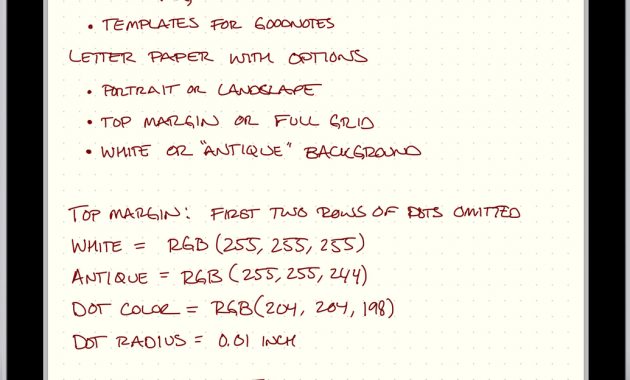 • TEMPLATES FOR GOODNOTES
LETTER PAPER WITH OPTIONS
• PORTRAIT OR LANDSCAPE
• TOP MARGIN OR FULL GRID
• WHITE OR "ANTIQUE" BACKGROUND
TOP MARGIN: FIRST TWO ROWS OF DOTS OMITTED
WHITE = RGB (255, 255, 255)
ANTIQUE = RGB (255, 255, 244)
DOT COLOR = RGB(204, 204, 198)
DOT RADIUS = 0.01 INCH